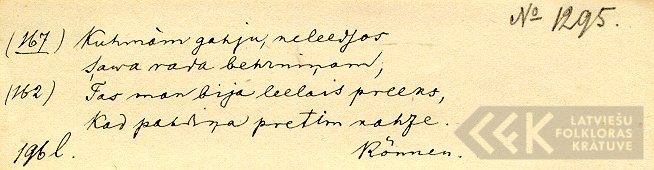 № 1295.
(167) Kuhmâm gahju, neleedsos
Sawa rada behrniņam,
(162) Tas man bija leelais preeks,
Kad pahdiņa pretim nahze.
196 l. Können.
LATVIEŠU
FOLKLORAS
KRĀTUVE